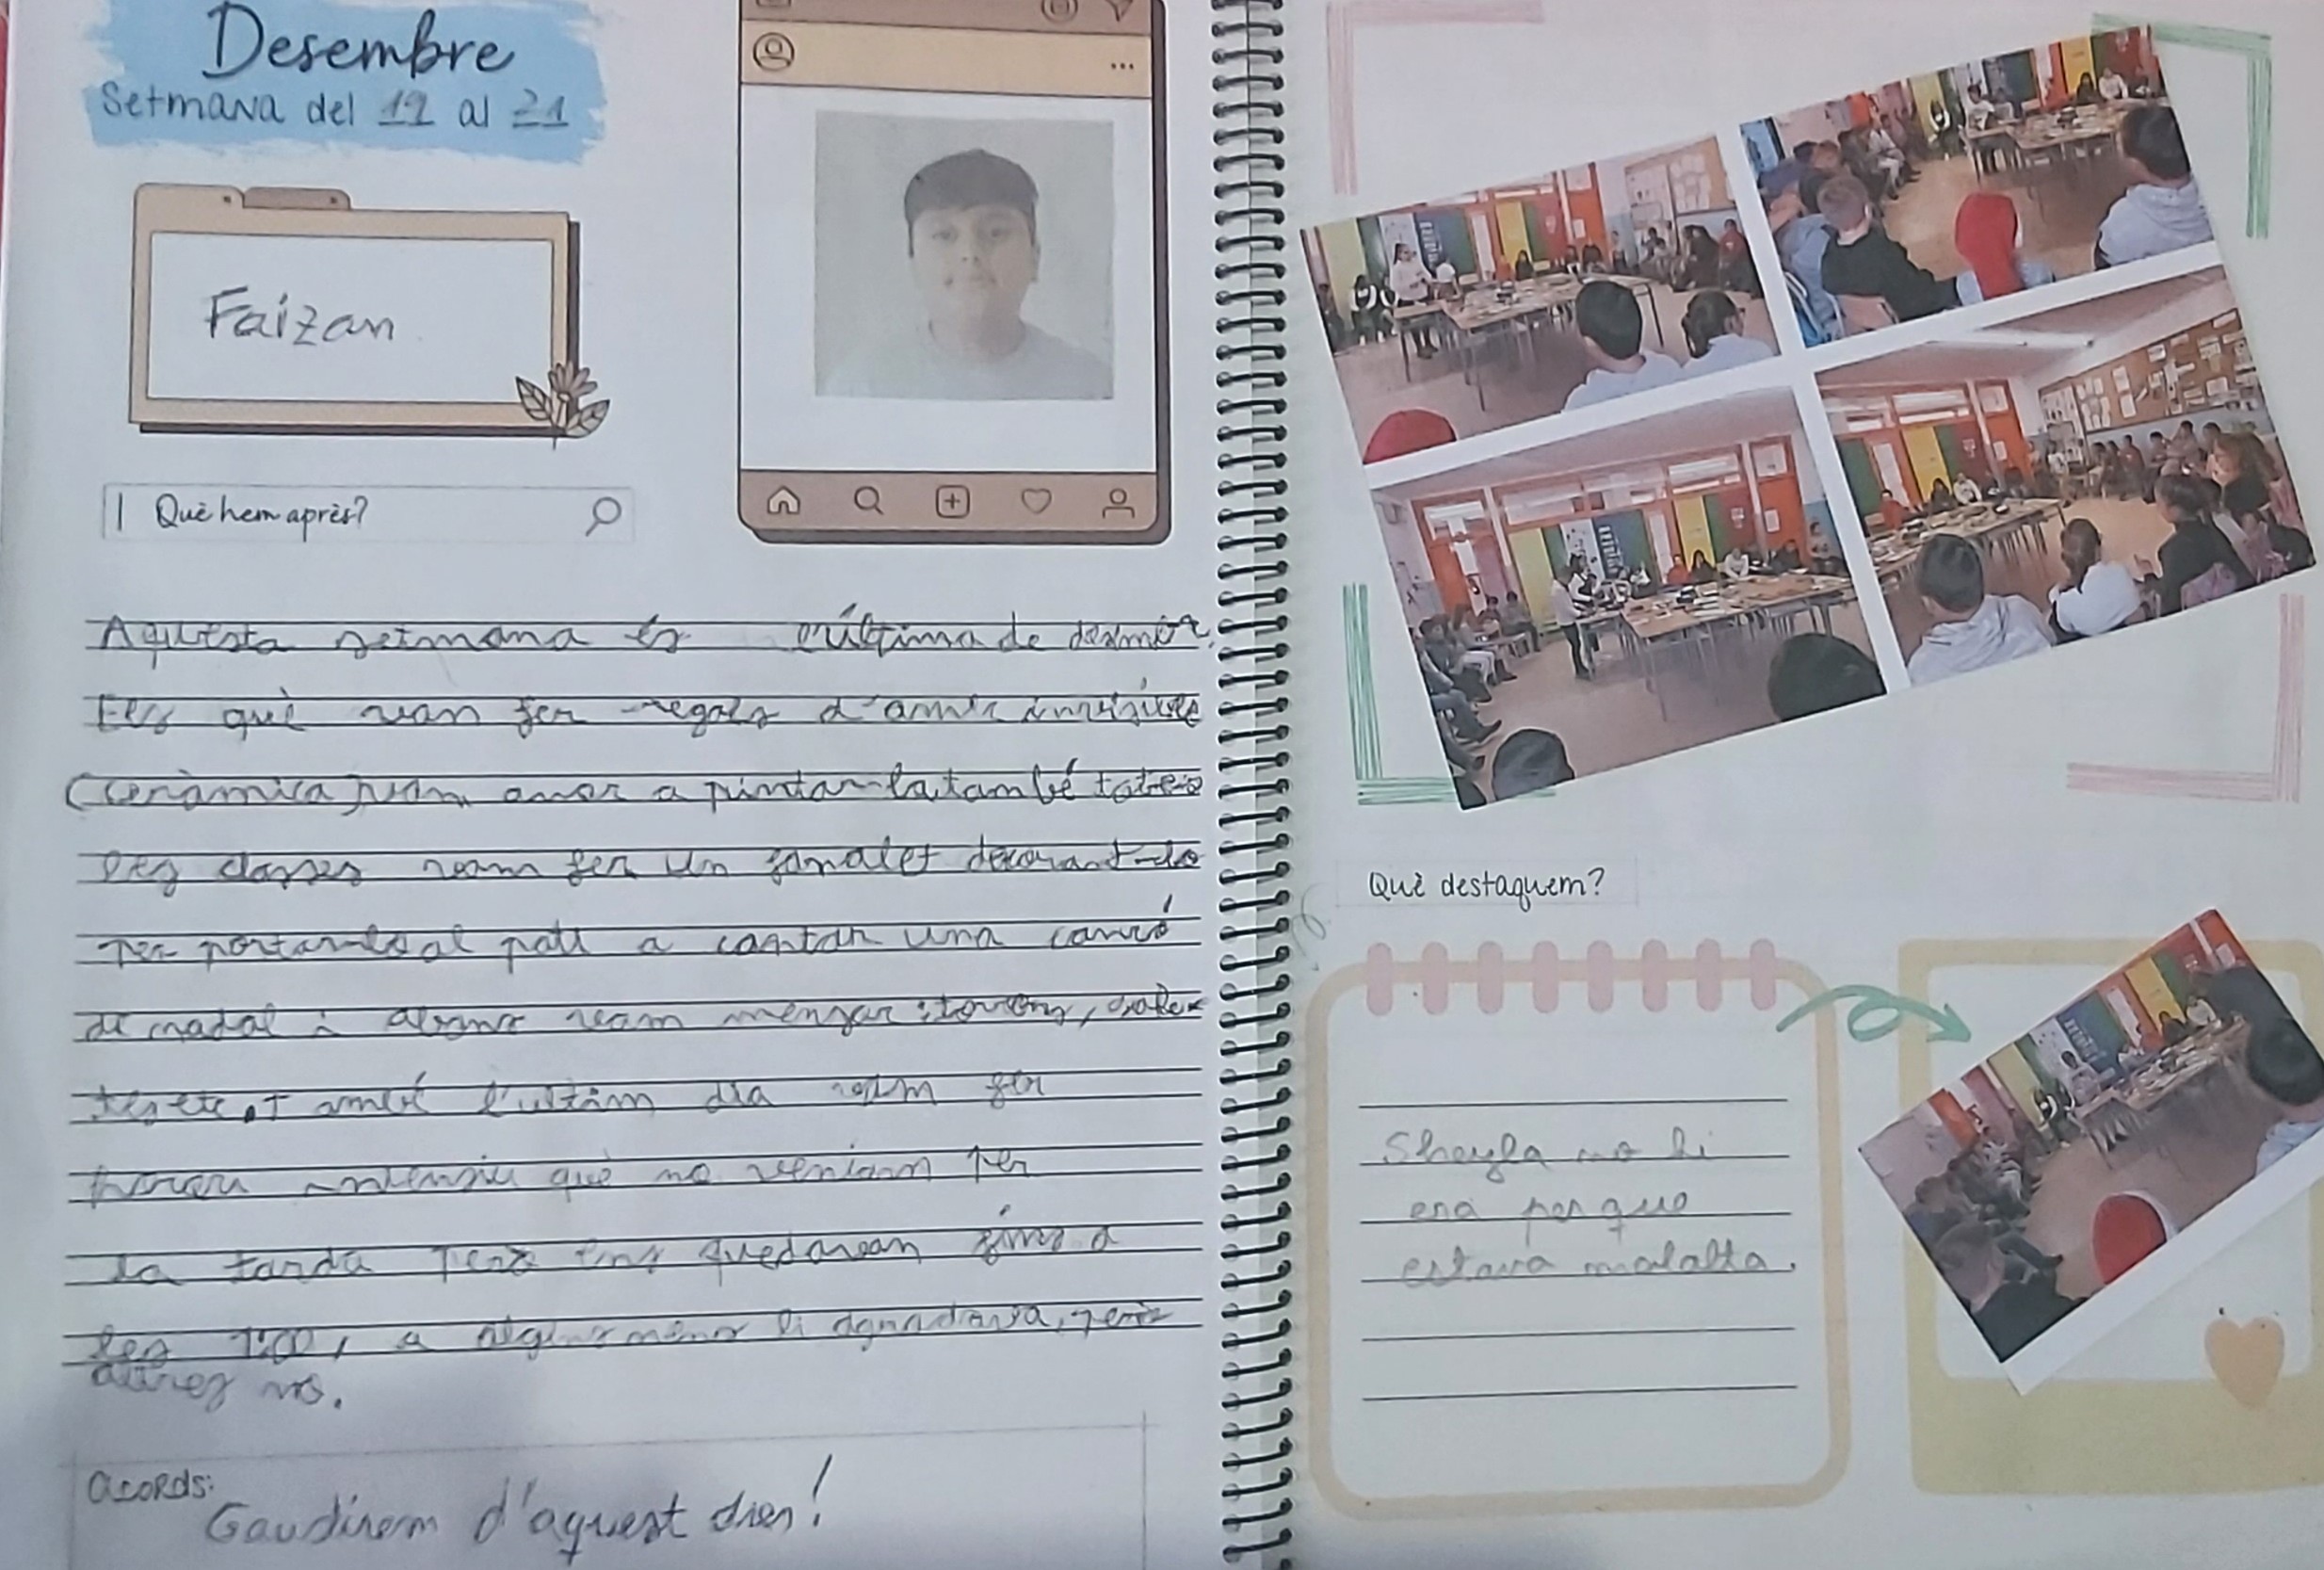 Desembre
Setmana del 12 al 21
Faizan
Què hem après?
Aquesta setmana és l'última de
què vam fer regals d'amic invisible
(Ceràmica) vam anar a pintar-la, també totes
les classes vam fer un fanalet decorant-lo
per portar-lo al pati a cantar una cançó
de nadal i vam menjar
etc. També l'ultim dia vam fer
horari intensiu què no veniam per
la tarda però ens quedavan fins a
les a li agradava, però
altres no.
acords:
Gaudirem d'aquest dies!
Què destaquem?
Sheyla no hi
era per que
estava malalta.